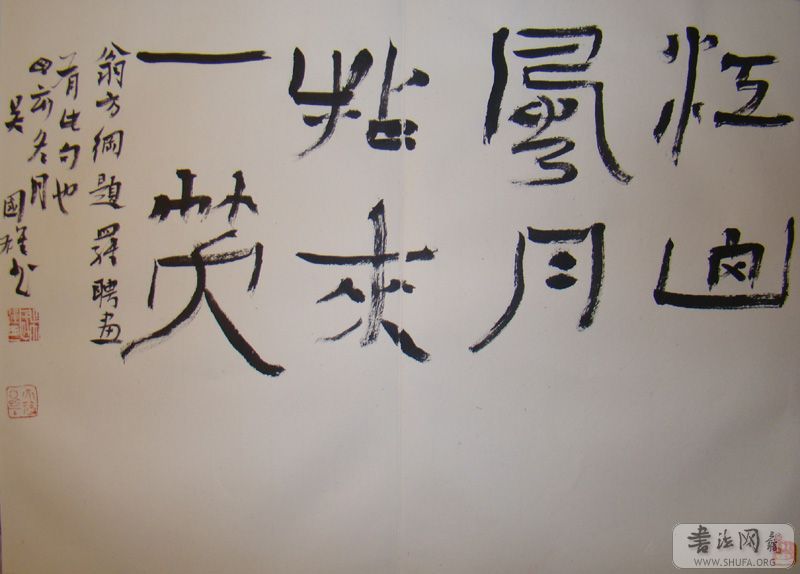 江
風月
拈來
一笑
翁方綱題羅聘畫
有此句也
冬月
吳國書
書法网
WWW.SHUFA.ORG